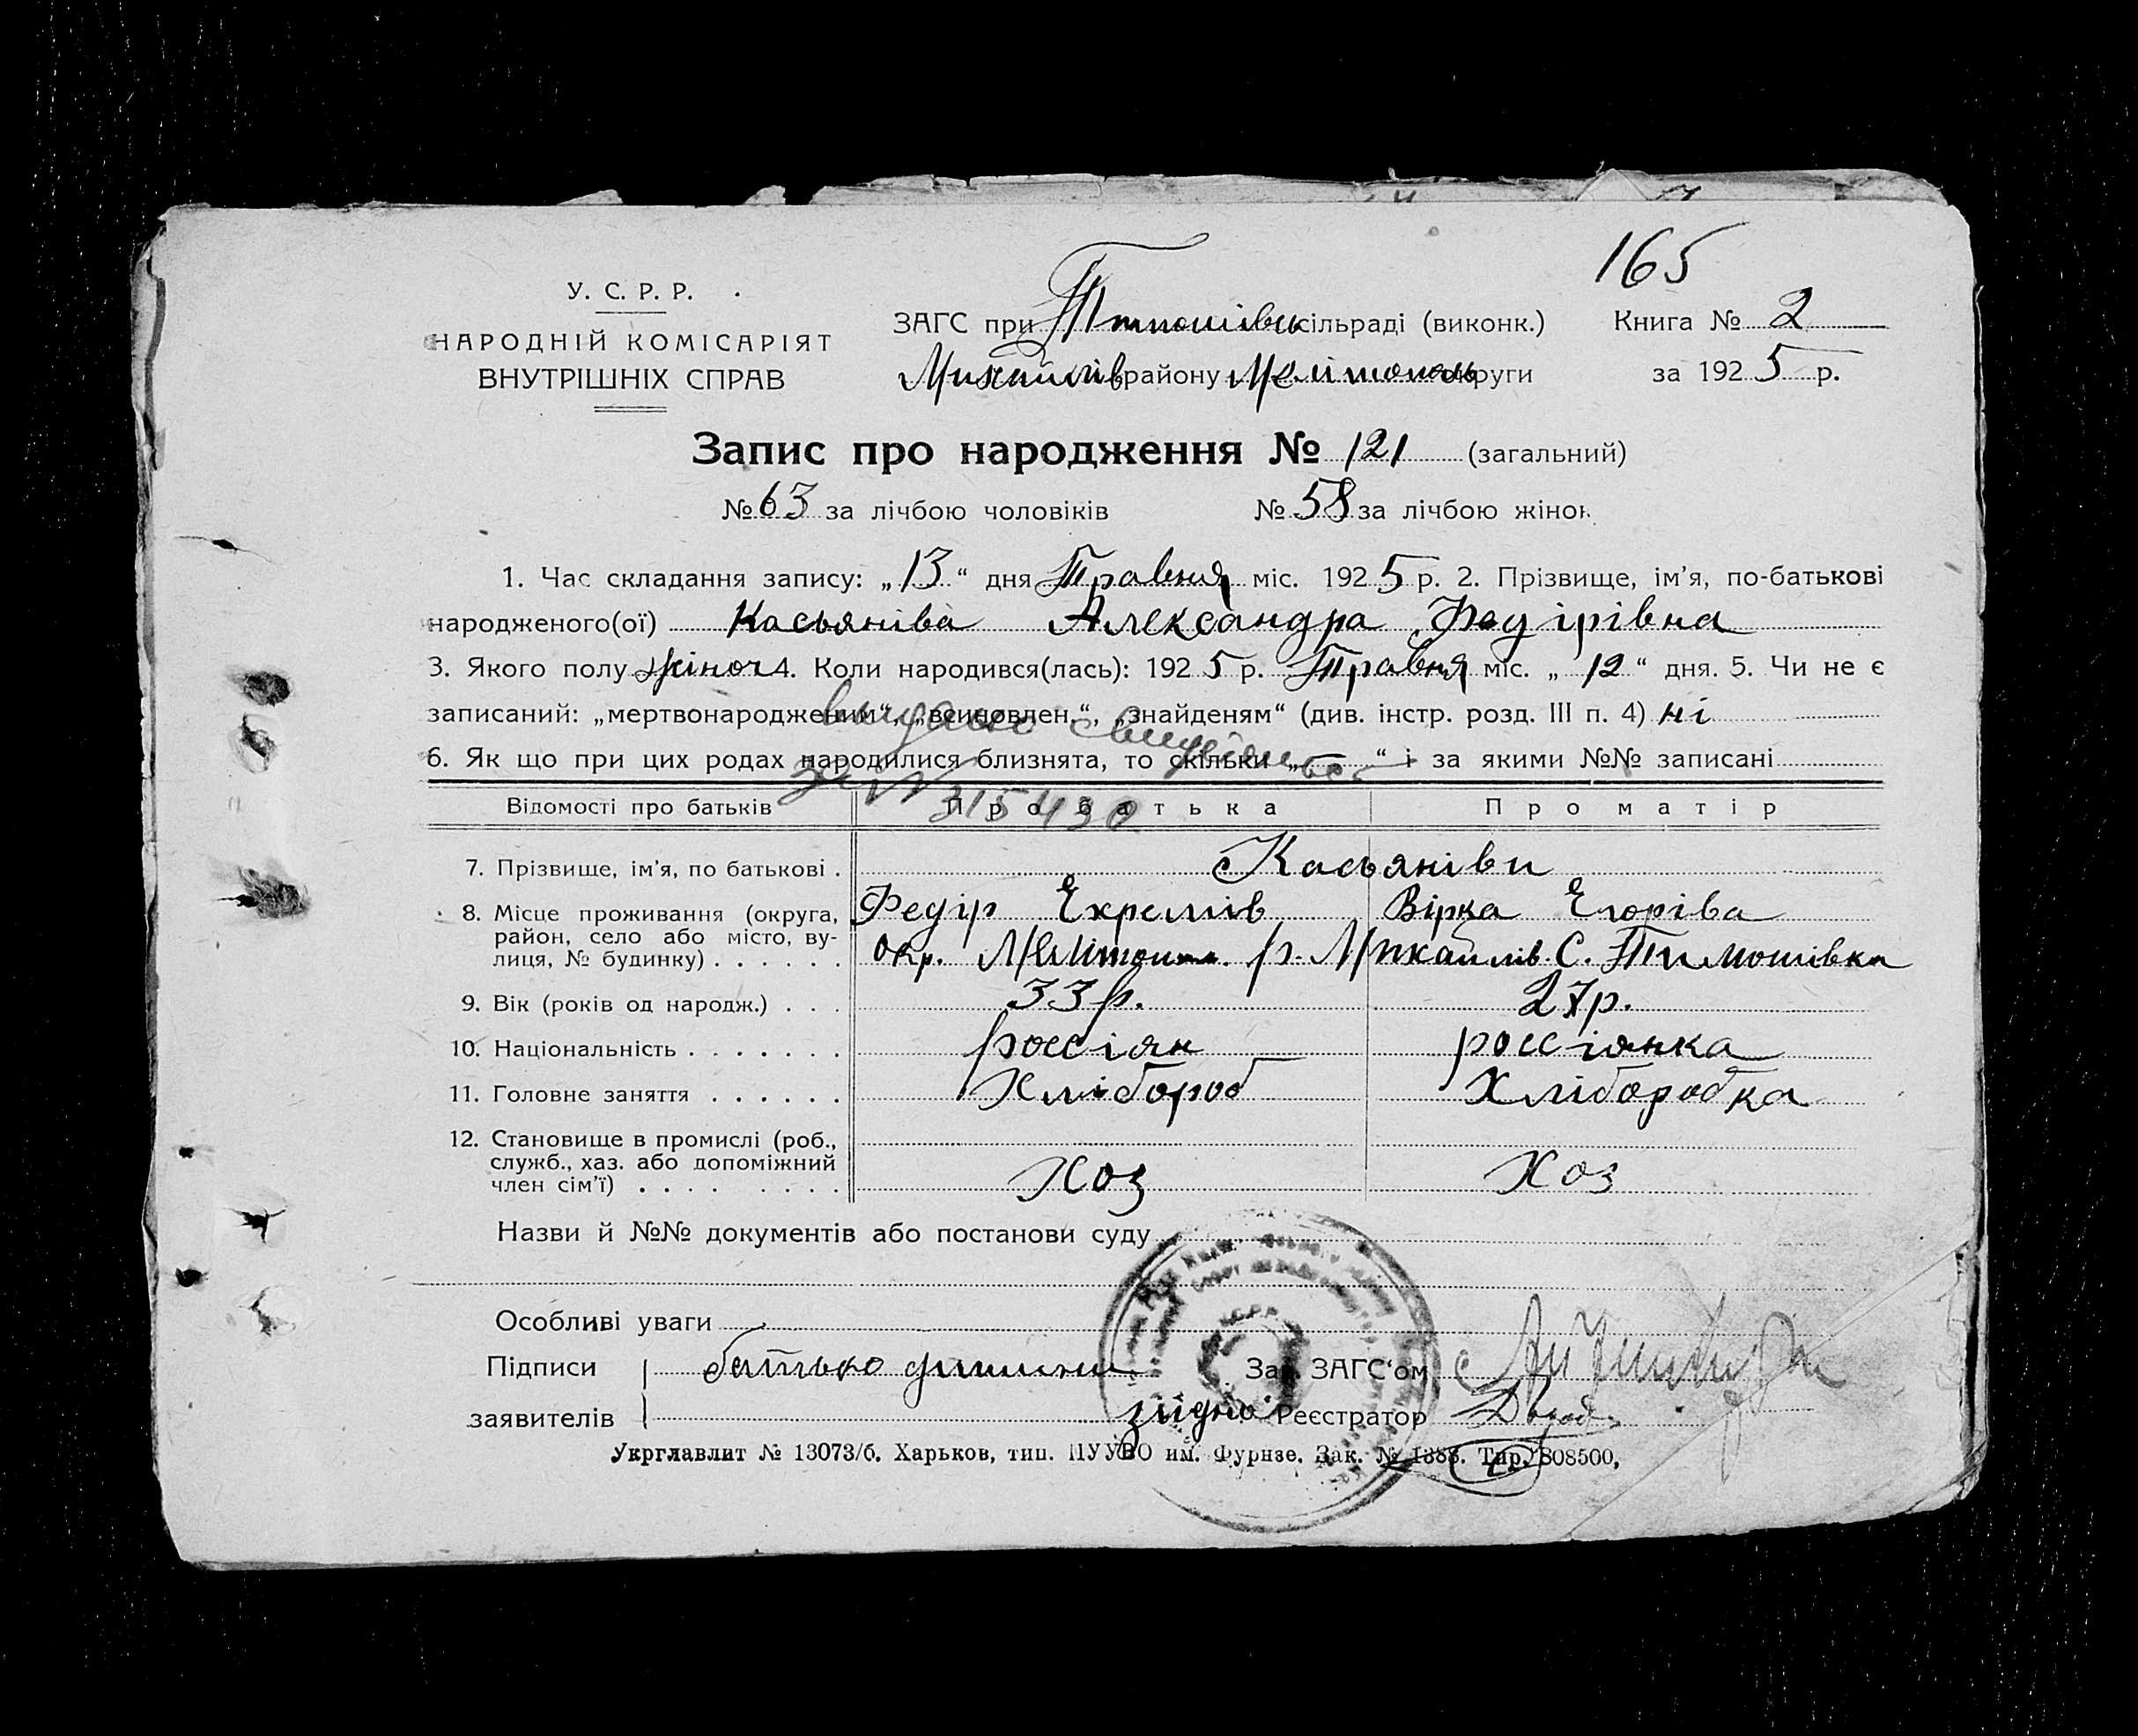 165
У. С. Р. Р.
НАРОДНІЙ КОМІСАРІЯТ
ВНУТРІШНІХ СПРАВ
ЗАГС при Тимошівськ сільраді (виконк.)
Михайлів району Мелітополь округи
Книга № 2
за 1925 р.
Запис про народження № 121 (загальний)
№ 63 за лічбою чоловіків № 58 за лічбою жінок
1. Час складання запису: „13“ дня Травня міс. 1925 р. 2. Прізвище, ім'я, по-батькові
народженого(ої) Касьяніва Александра Федірівна
3. Якого полу жіноч 4. Коли народився(лась): 1925 р. Травня міс. „12“ дня. 5. Чи не є
записаний: „мертвонародженим“, „всиновлен.“, „знайденям“ (див. інстр. розд. III п. 4) ні
6. Як що при цих родах народилися близнята, то скільки „—“ і за якими №№ записані
видано свидотельство
за № 315430
Відомості про батьків Про батька Про матір
7. Прізвище, ім'я, по батькові . Касьяніви
Федір Ехремів Вірка Егоріва
8. Місце проживання (округа,
район, село або місто, ву-
лиця, № будинку) . . . . . . окр. Мелітопол. р. Михайлів. С. Тимошівка
9. Вік (років од народж.) . . . 33 р. 27 р.
10. Національність . . . . . . . россіян россіянка
11. Головне заняття . . . . . . Хлібороб Хліборобка
12. Становище в промислі (роб.,
служб., хаз. або допоміжний
член сім'ї) . . . . . . . . Хоз Хоз
Назви й №№ документів або постанови суду
Особливі уваги
Підписи батько
заявителів
Зав ЗАГС'ом
згідно Реєстратор
Укрглавлит № 13073/б. Харьков, тип. ПУУВО им. Фурнзе. Зак. № 1388. Тир. 808500,